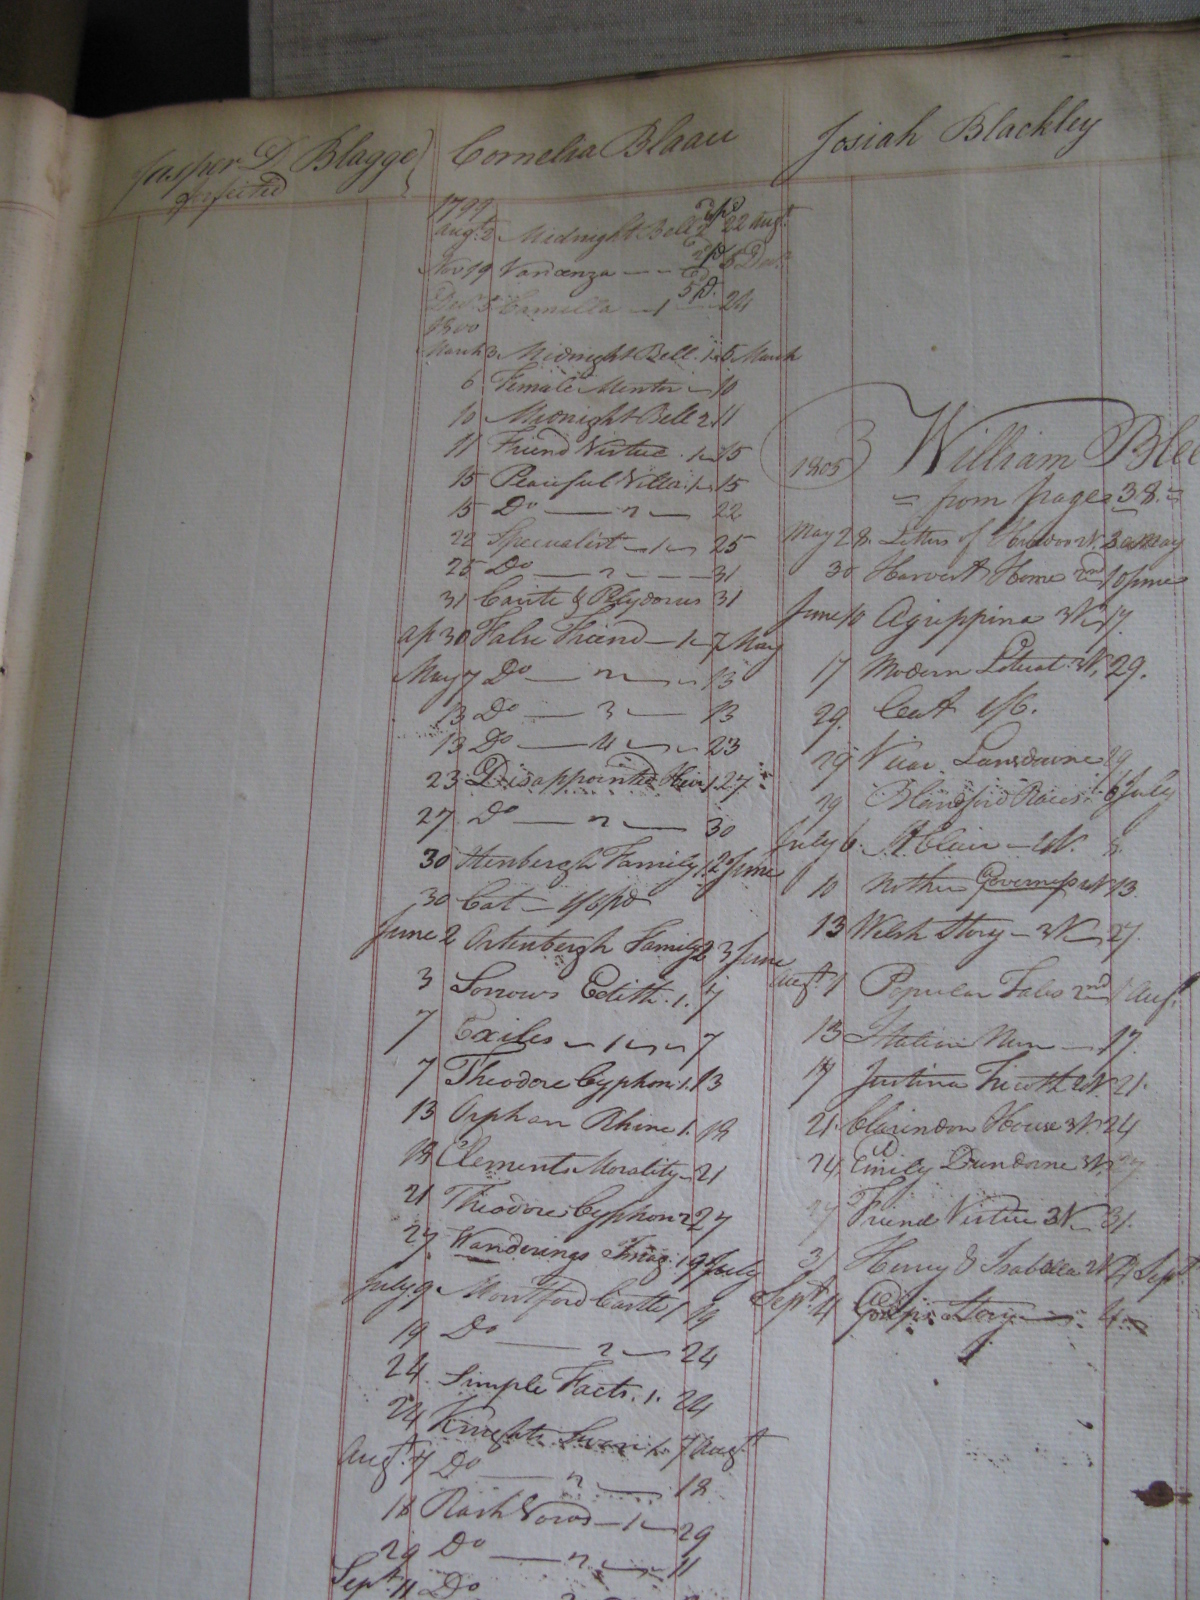 Jasper D Blagge
forfeited
Cornelia Blaau
1799
Augt. 2 Midnight Bell 2 22 Augt.
Nov 19 Vancenza
Decr. 5 Camilla 1 24
1800
March 3 Midnight Bell 1 5 March
6 Female Mentor 10
10 Midnight Bell 2 11
11 Friend Virtue 1 15
15 Peaceful Villa 1 15
15 Do 2 22
22 Speculatist 1 25
25 Do 2 31
31 & Polydorus 31
Ap 30 False Friend 1 7 May
May 7 Do 2 13
13 Do 3 13
13 Do 4 23
23 Disappointed Heir 1 27
27 Do 2 30
30 Family 1 2 June
30 Cat 1/6 pd
June 2 Ortenbergh Family 2 3 June
3 Sorrows Edith 1. 7
7 Exiles 1 7
7 Theodore Cyphon 1. 13
13 Orphan Rhine 1. 18
18 Clements Morality 21
21 Theodore Cyphon 2 27
27 Wanderings Imag. 1 9 July
July 9 Montford Castle 1 19
19 Do 2 24
24 Simple Facts. 1. 24
24 Knights Swan 1. 7 Augt.
Augt. 7 Do 2 18
18 Rash Vows 1 29
29 Do 2 11
Sept. 11 Do
Josiah Blackley
1805
William Blee
from page 38.
May 28. Letters of May
30 Harvest Home 2nd 10 June
June 10 Agrippina 3 V. 17
17 Modern Literat. 3 V. 29.
29. Cat 1/6.
29 Vicar Lansdowne 29
29 Blandford Races 1 6 July
July 6. St Clair V. 8
10 Mother Governess V. 13
13 Welsh Story V 27.
Augt. 1 Popular Tales 2nd 1 Augt.
13 Italian Nun 17.
17 Justina V. 21.
21. Clarendon House 3 V. 24
24. Emily Dundorne 3 V. 27
27 Friend Virtue 3 V 31.
31 Henry & Isabella 2 V 4 Sept
Sept. 4 Story 4